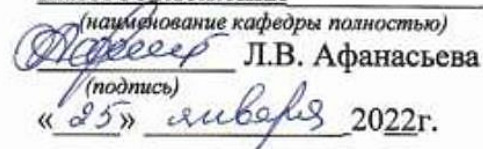 (наименование кафедры полностью)
Л.В. Афанасьева
(подпись)
«25» января 2022г.